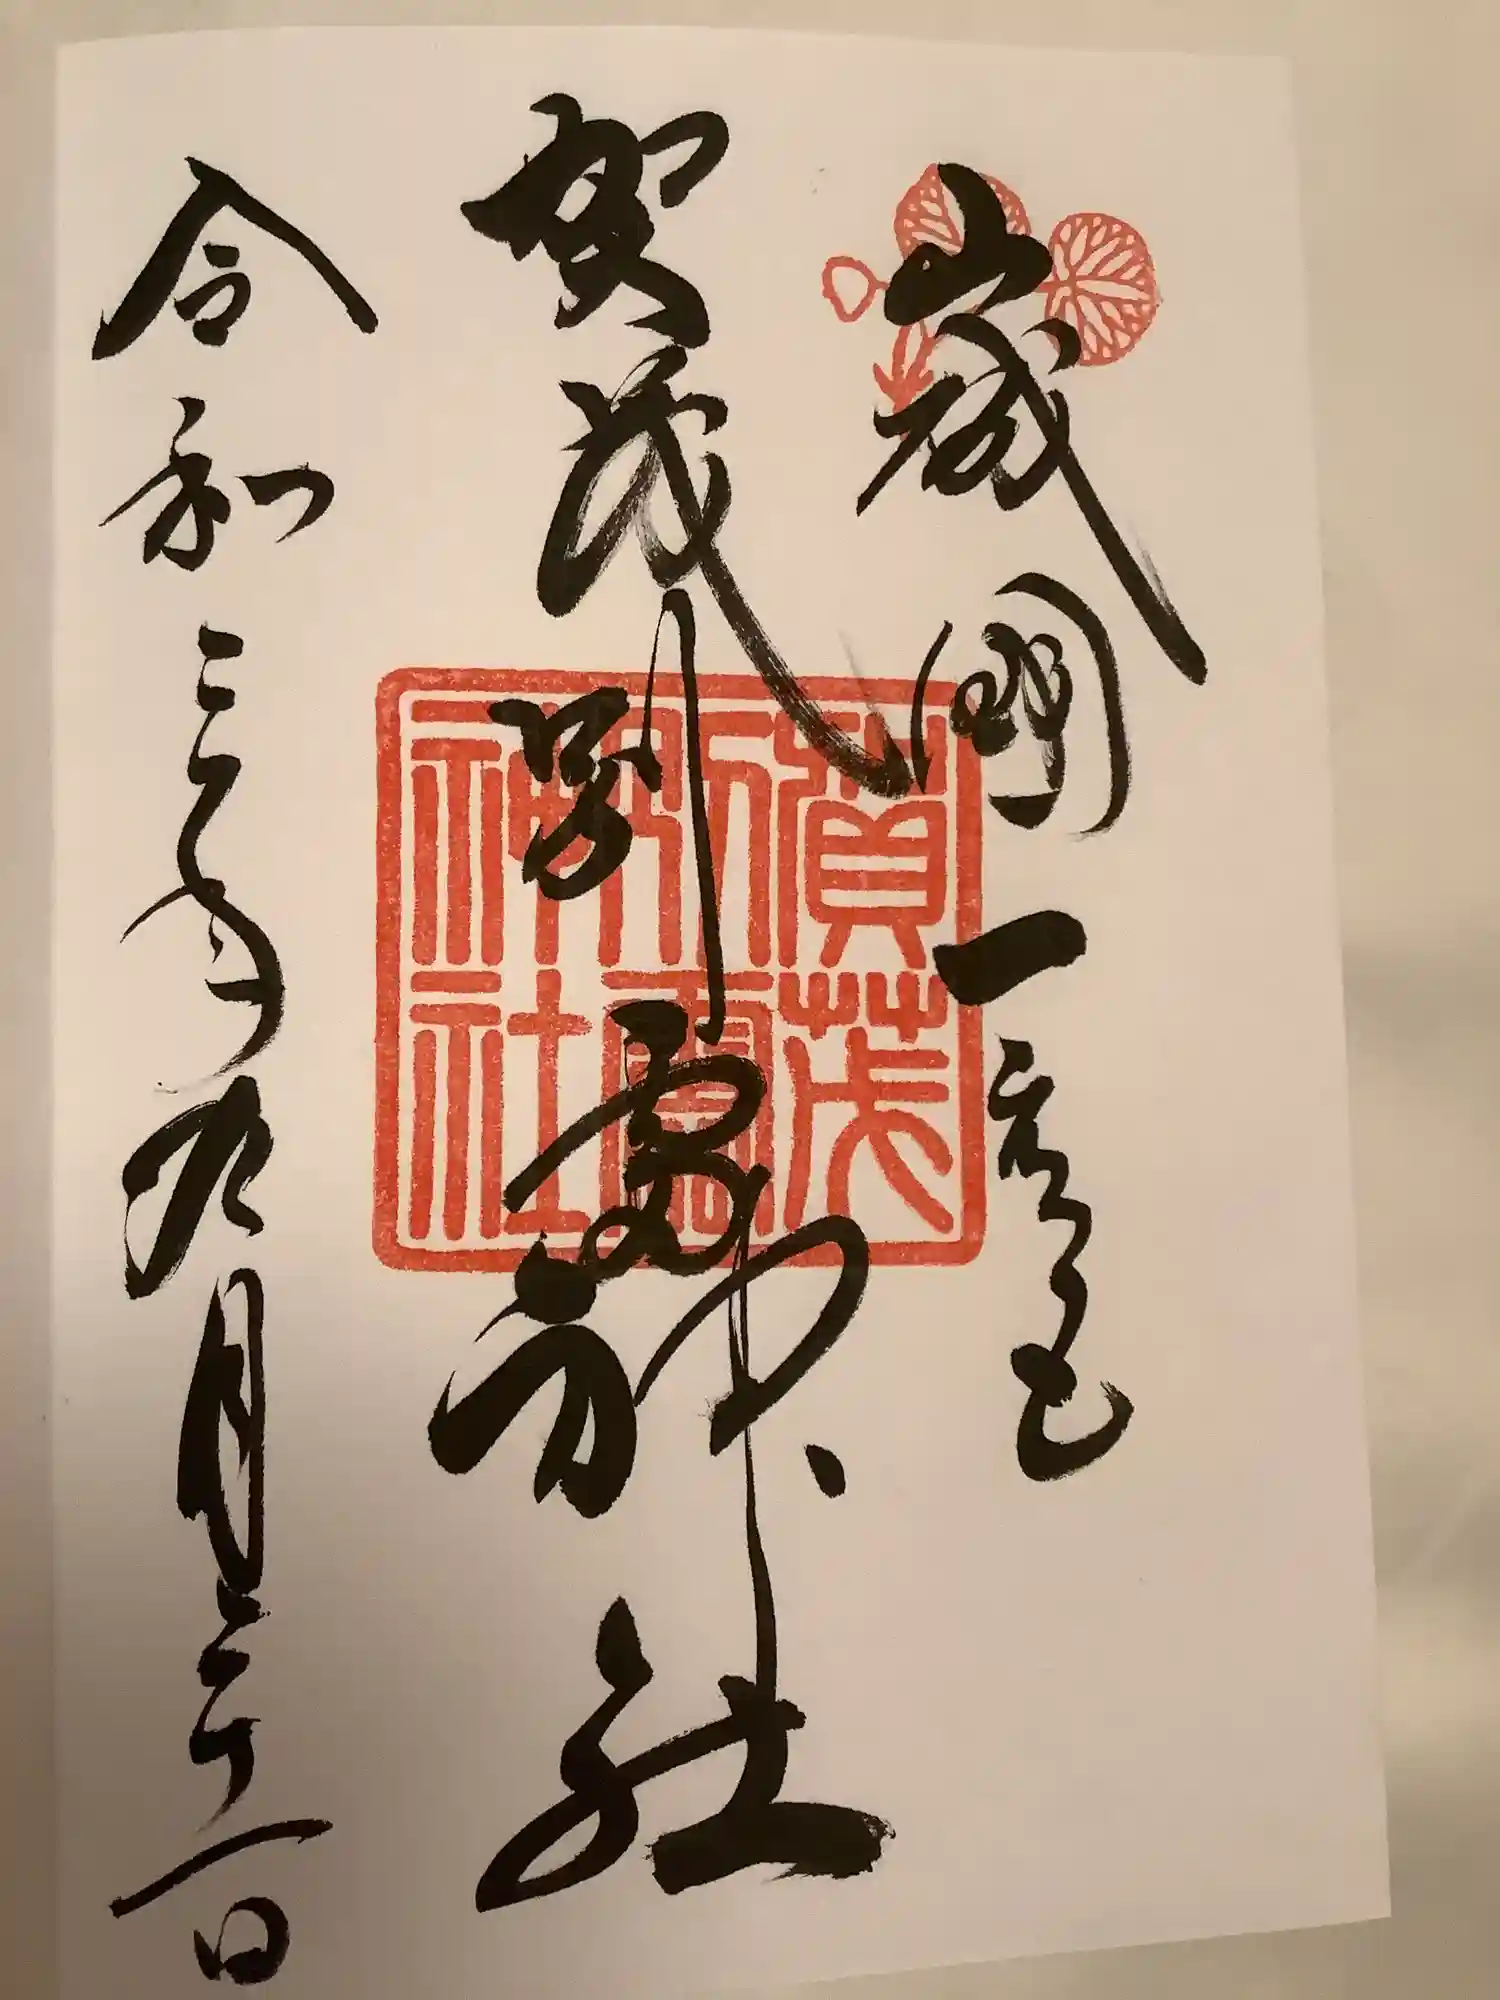 山城國一
賀茂別雷神社
令和三年九月二十一日
賀茂
別雷
神社